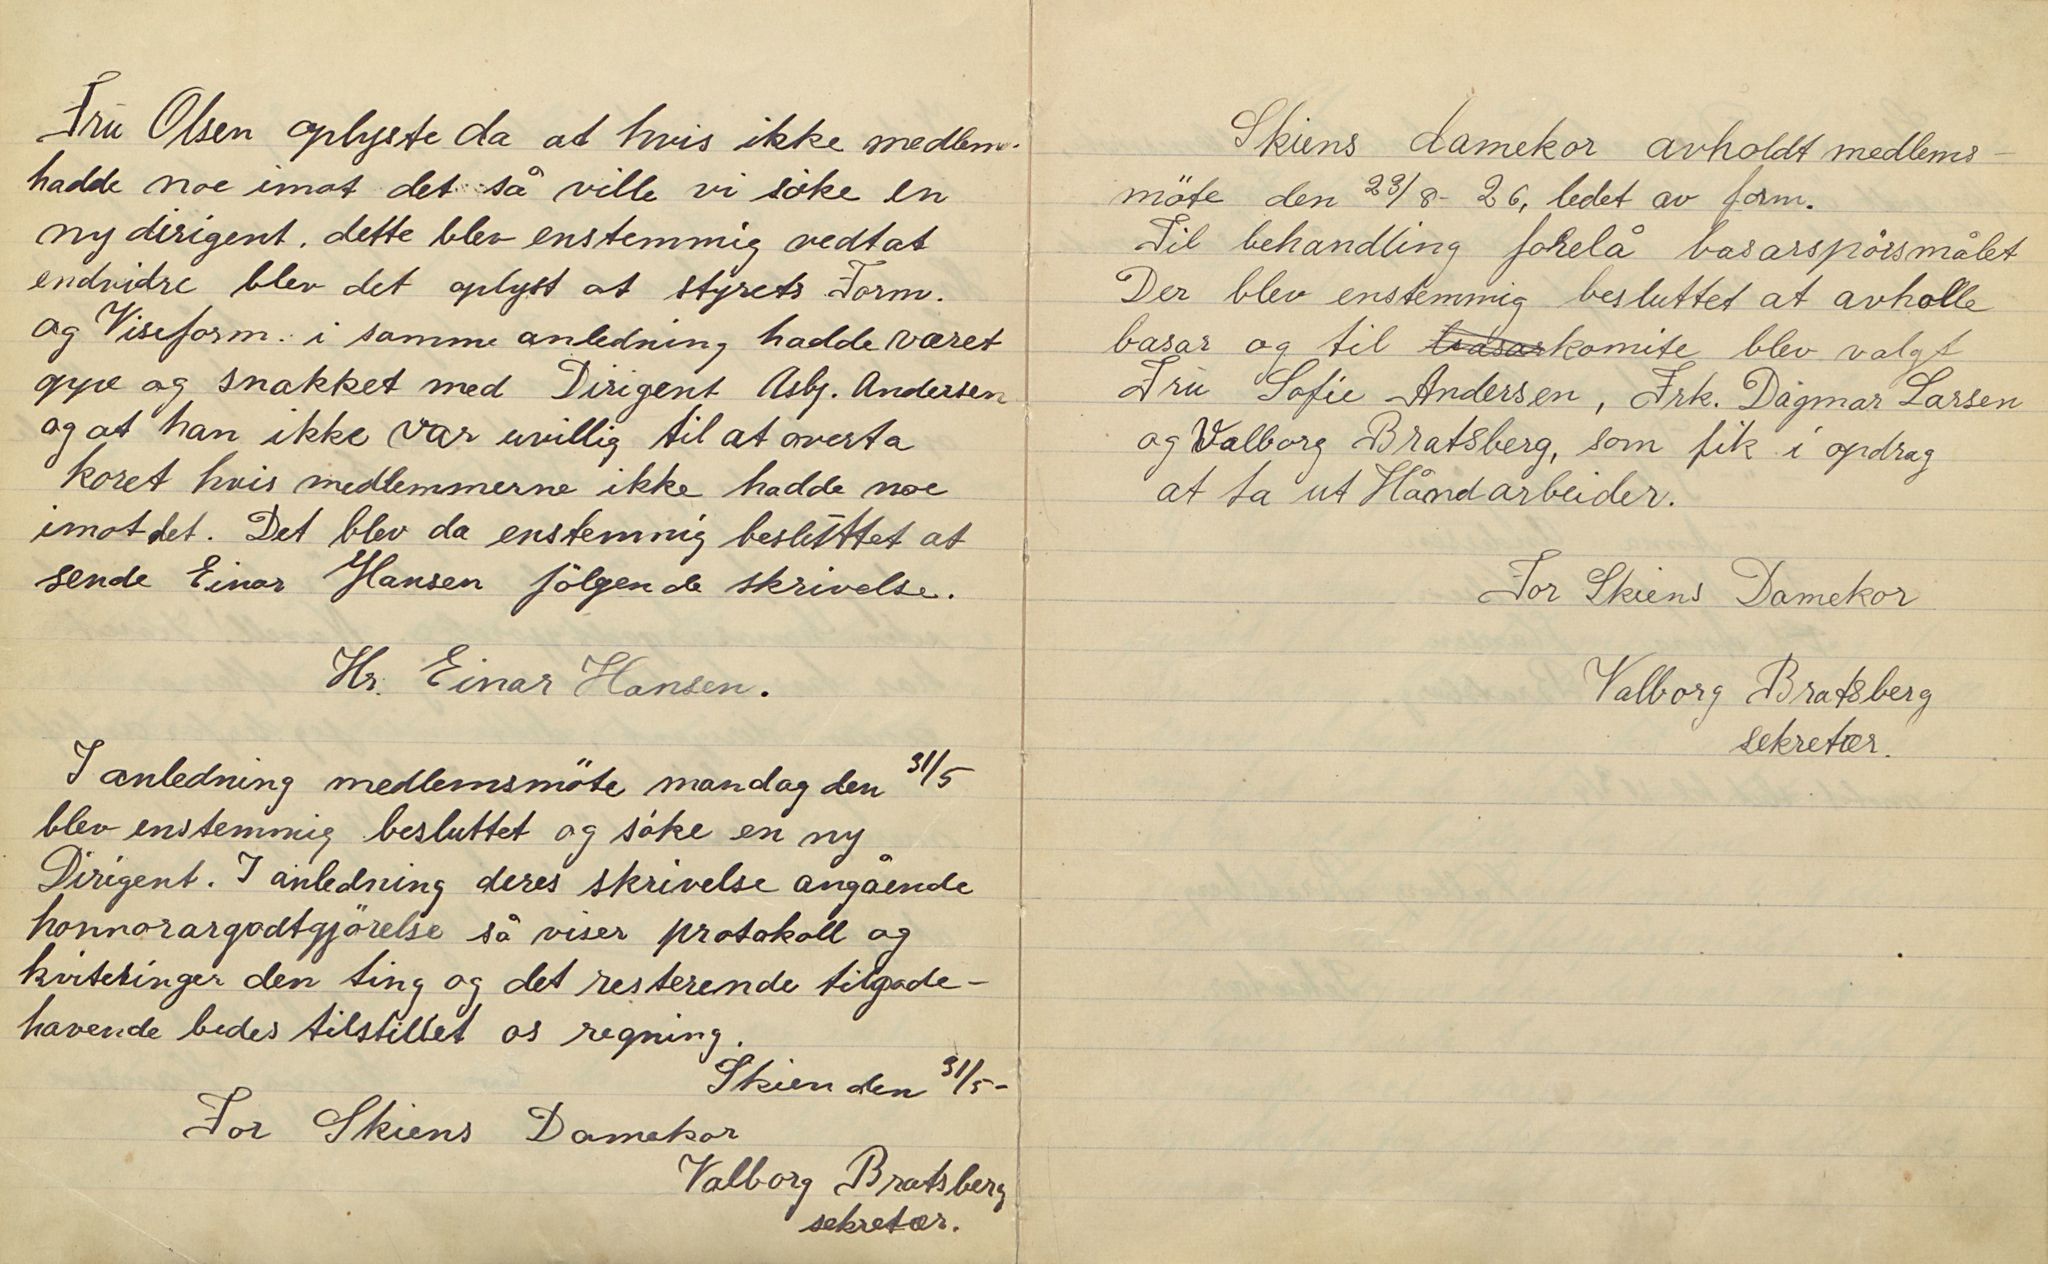 Fru Olsen oplyste da at hvis ikke medlem.
hadde noe imot det så ville vi söke en
ny dirigent. dette blev enstemmig vedtat
endvidre blev det oplyst at styrets Form.
og Viseform. i samme anledning hadde været
oppe og snakket med Dirigent Asbj. Andersen
og at han ikke var uvillig til at overta
koret hvis medlemmerne ikke hadde noe
imot det. Det blev da enstemmig besluttet at
sende Einar Hansen fölgende skrivelse.
Hr. Einar Hansen.
I anledning medlemsmöte mandag den 31/5
blev enstemmig besluttet og söke en ny
Dirigent. I anledning deres skrivelse angående
honnorargodtgjörelse så viser protokoll og
kviteringer den ting og det resterende tilgode-
havende bedes tilstillet os regning.
Skien den 31/5-
For Skiens Damekor
Valborg Bratsberg
sekretær.
Skiens damekor avholdt medlems-
möte den 23/8- 26, ledet av form.
Til behandling forelå basarspörsmålet
Der blev enstemmig besluttet at avholle
basar og til basarkomite blev valgt
Fru Sofie Andersen, Frk. Dagmar Larsen
og Valborg Bratsberg, som fik i opdrag
at ta ut Håndarbeider.
For Skiens Damekor
Valborg Bratsberg
sekretær.